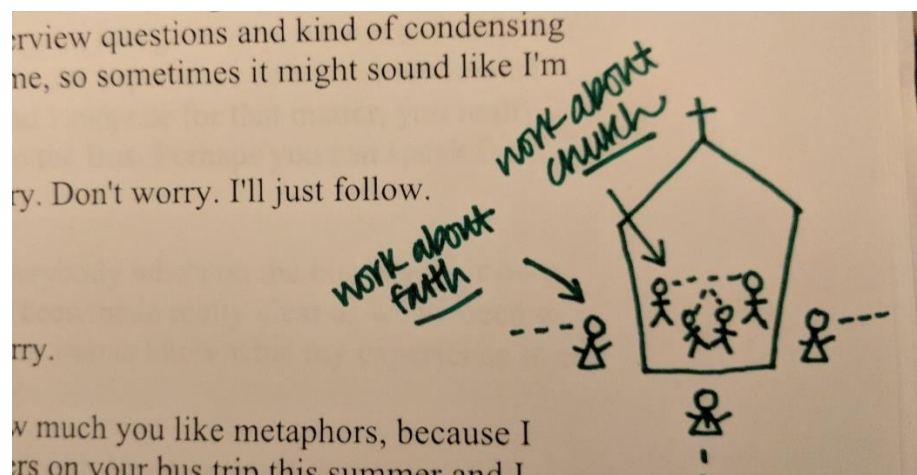 erview questions and kind of condensing
me, so sometimes it might sound like I'm
ry. Don't worry. I'll just follow.
rry.
w much you like metaphors, because I
ers on your bus trip this summer and I
work about
church
work about
faith